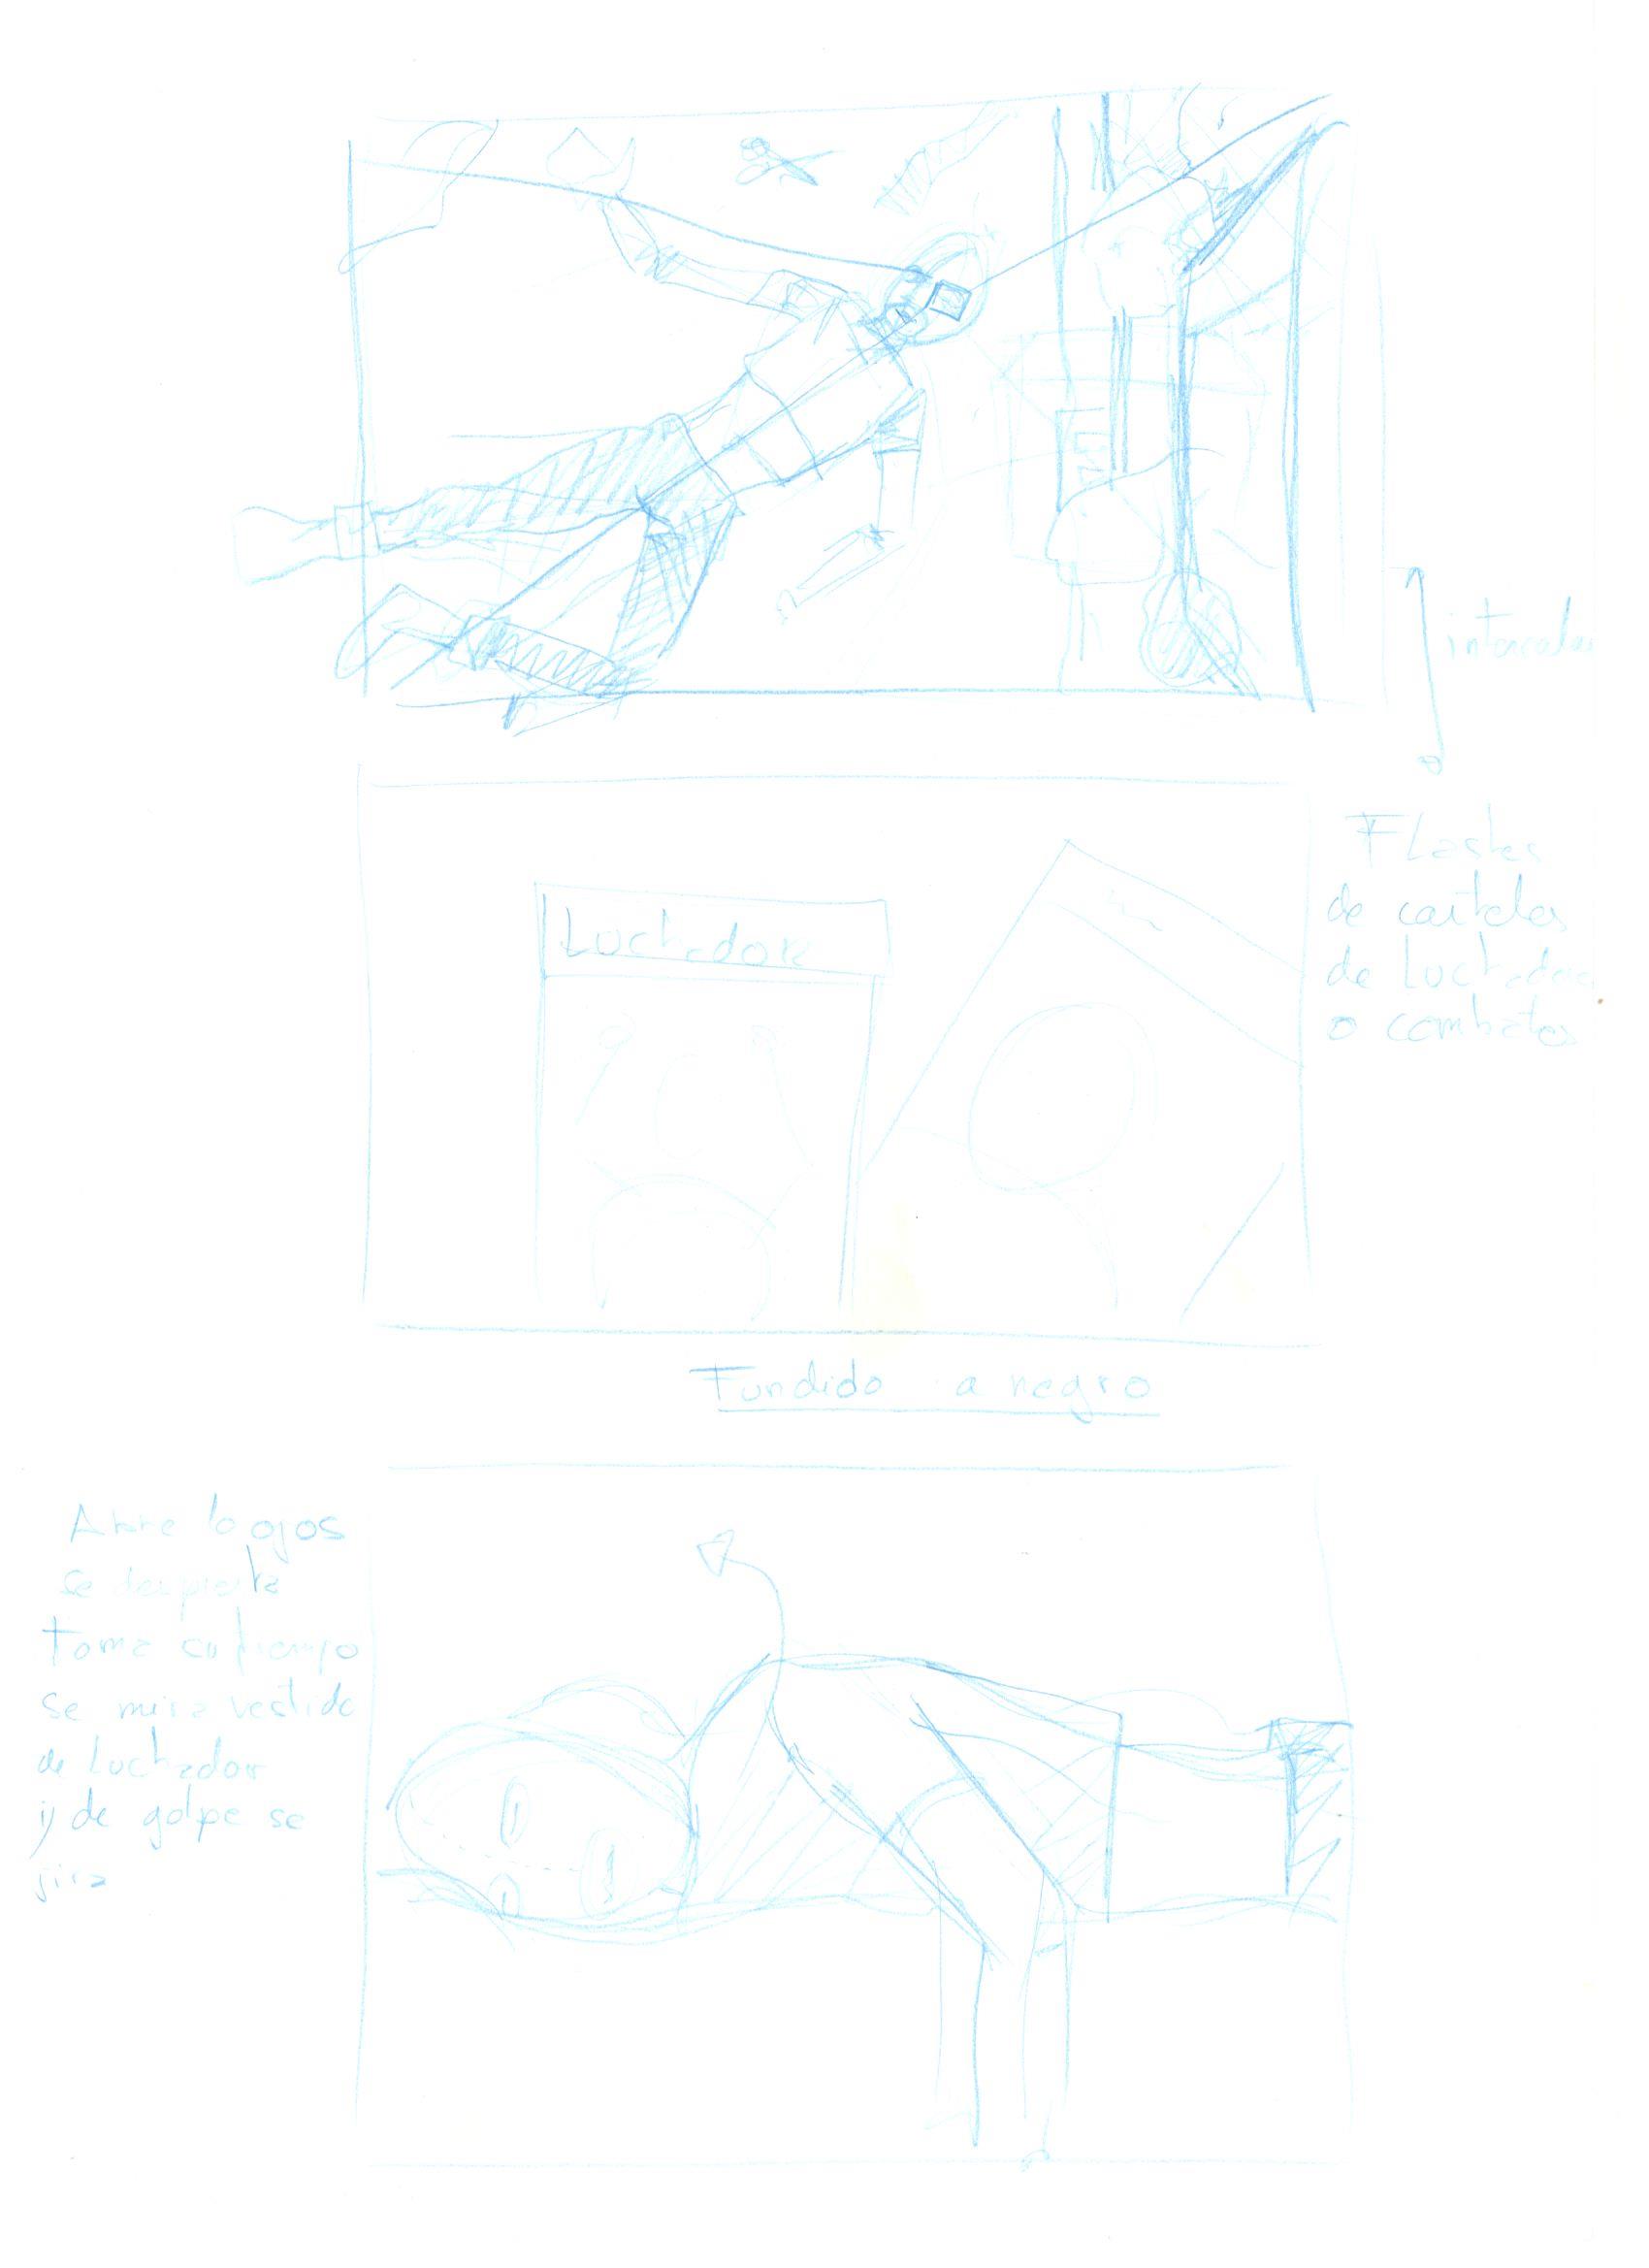 intercalar
Flashes
de carteles
de Luchadores
o combates
Luchador
Fundido a negro
Abre lo ojos
se despierta
Toma su tiempo
se mira vestido
de Luchador
y de golpe se
jira